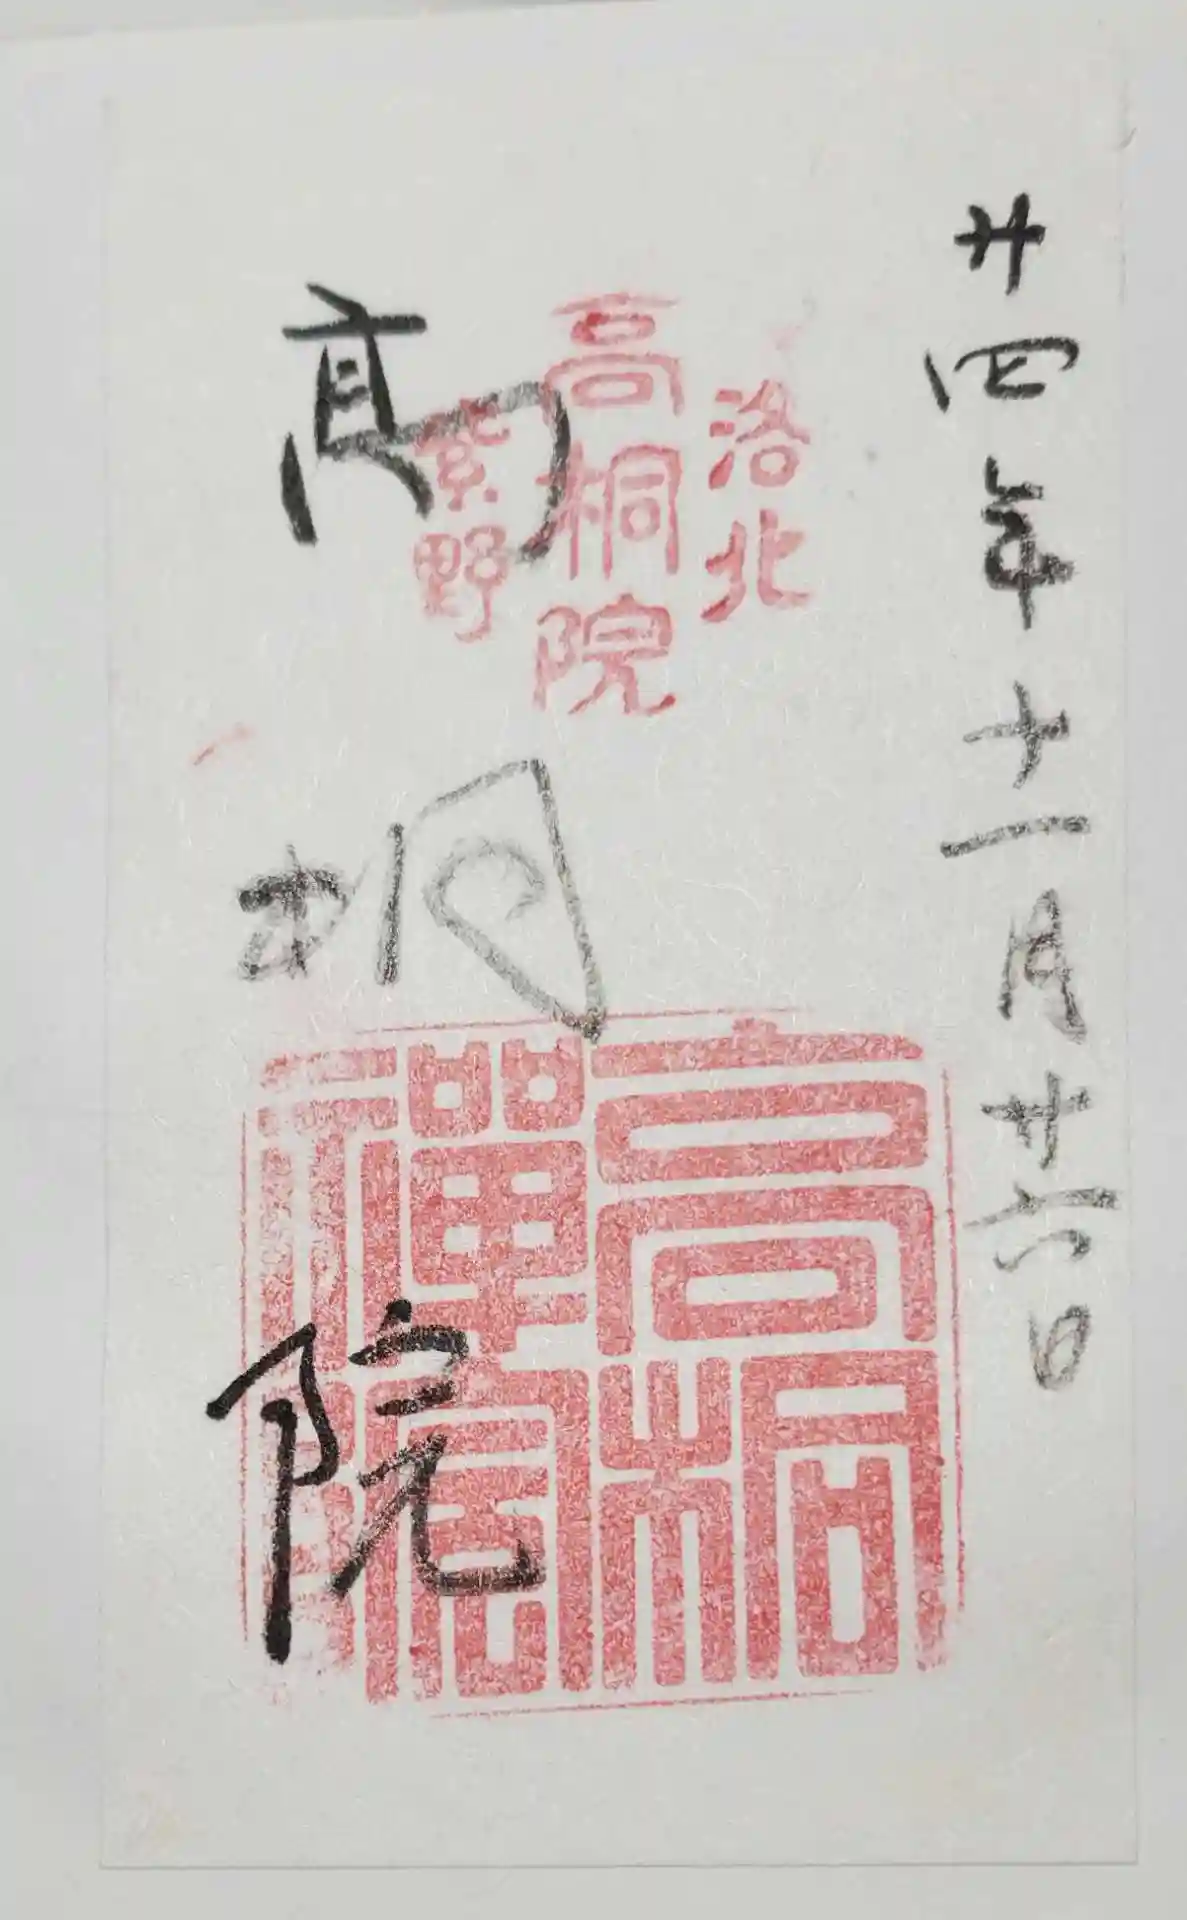 廿四年十一月廿六日
洛北
高桐院
紫野
高桐院
高桐
禅院